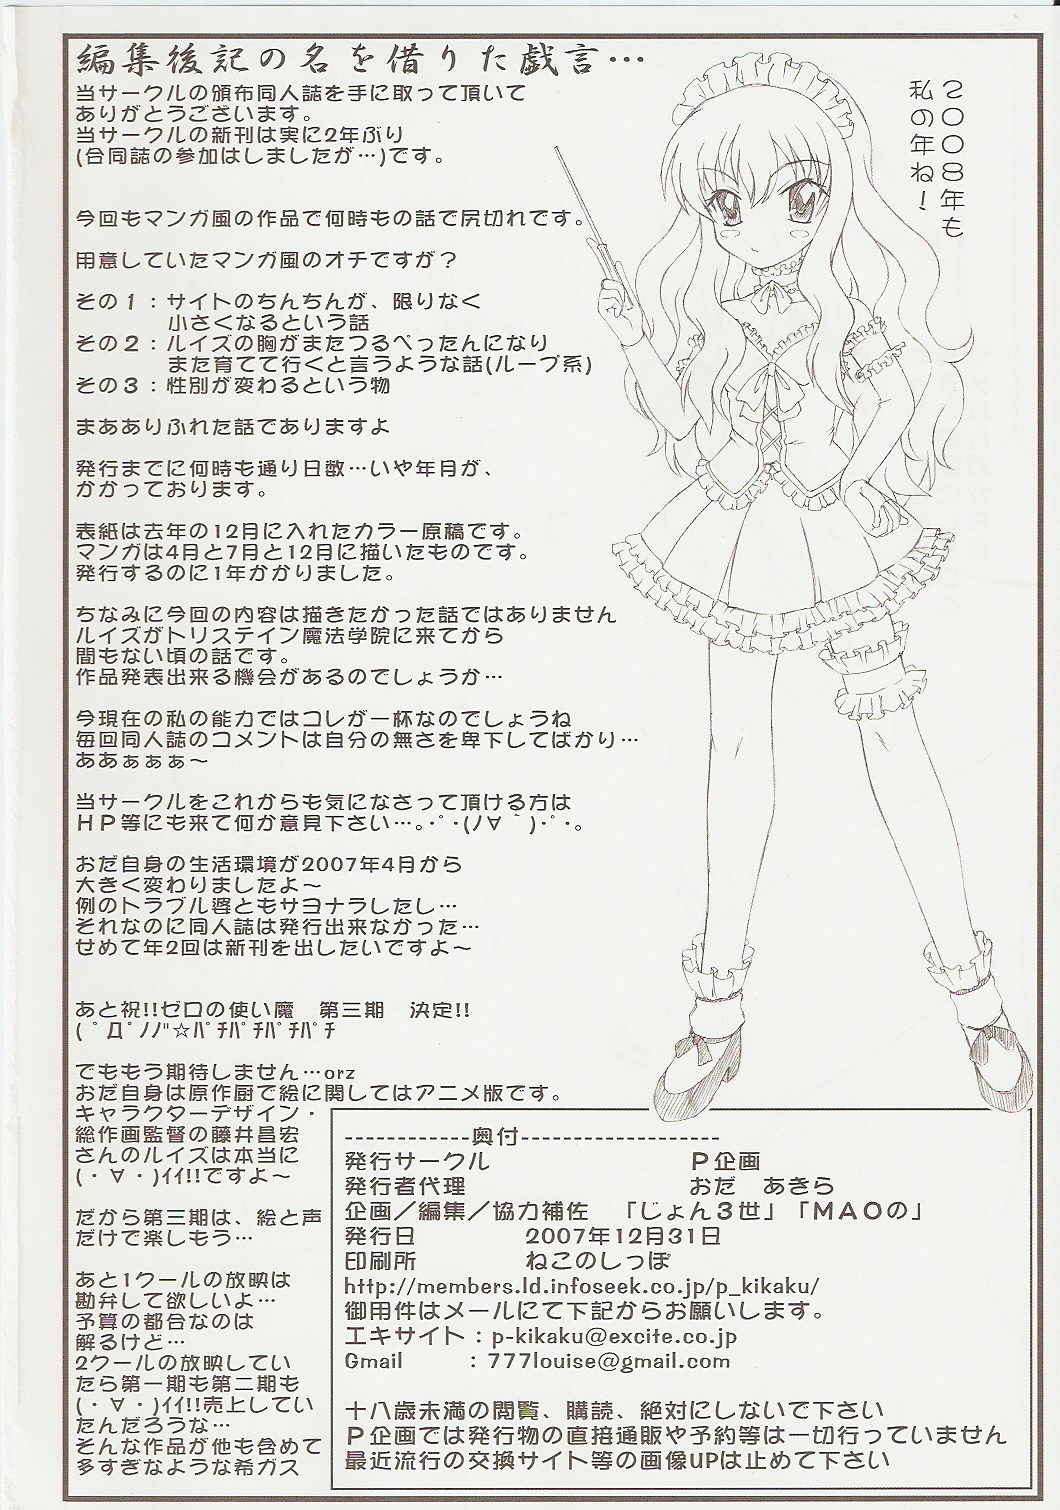 編集後記の名を借りた戯言…
当サークルの頒布同人誌を手に取って頂いて
ありがとうございます。
当サークルの新刊は実に2年ぶり
(合同誌の参加はしましたが…)です。
今回もマンガ風の作品で何時もの話で尻切れです。
用意していたマンガ風のオチですが？
その１：サイトのちんちんが、限りなく
小さくなるという話
その２：ルイズの胸がまたつるぺったんになり
また育てて行くと言うような話(ループ系)
その３：性別が変わるという物
まあありふれた話でありますよ
発行までに何時も通り日数…いや年月が、
かかっております。
表紙は去年の12月に入れたカラー原稿です。
マンガは4月と7月と12月に描いたものです。
発行するのに1年かかりました。
ちなみに今回の内容は描きたかった話ではありません
ルイズがトリステイン魔法学院に来てから
間もない頃の話です。
作品発表出来る機会があるのでしょうか…
今現在の私の能力ではコレが一杯なのでしょうね
毎回同人誌のコメントは自分の無さを卑下してばかり…
ああぁぁぁ～
当サークルをこれからも気になさって頂ける方は
ＨＰ等にも来て何か意見下さい…｡･ﾟ･(ﾉ∀｀)･ﾟ･｡
おだ自身の生活環境が2007年4月から
大きく変わりましたよ～
例のトラブル婆ともサヨナラしたし…
それなのに同人誌は発行出来なかった…
せめて年2回は新刊を出したいですよ～
あと祝!!ゼロの使い魔　第三期　決定!!
( ﾟДﾟﾉﾉ"☆ﾊﾟﾁﾊﾟﾁﾊﾟﾁﾊﾟﾁ
でももう期待しません…orz
おだ自身は原作厨で絵に関してはアニメ版です。
キャラクターデザイン・
総作画監督の藤井昌宏
さんのルイズは本当に
(・∀・)ｲｲ!!ですよ～
だから第三期は、絵と声
だけで楽しもう…
あと1クールの放映は
勘弁して欲しいよ…
予算の都合なのは
解るけど…
2クールの放映してい
たら第一期も第二期も
(・∀・)ｲｲ!!売上してい
たんだろうな…
そんな作品が他も含めて
多すぎなような希ガス
2008年も
私の年ね！
------------奥付-------------------
発行サークル　Ｐ企画
発行者代理　おだ　あきら
企画／編集／協力補佐　「じょん３世」「ＭＡＯの」
発行日　2007年12月31日
印刷所　ねこのしっぽ
http://members.ld.infoseek.co.jp/p_kikaku/
御用件はメールにて下記からお願いします。
エキサイト：p-kikaku@excite.co.jp
Gmail　：777louise@gmail.com
十八歳未満の閲覧、購読、絶対にしないで下さい
Ｐ企画では発行物の直接通販や予約等は一切行っていません
最近流行の交換サイト等の画像UPは止めて下さい